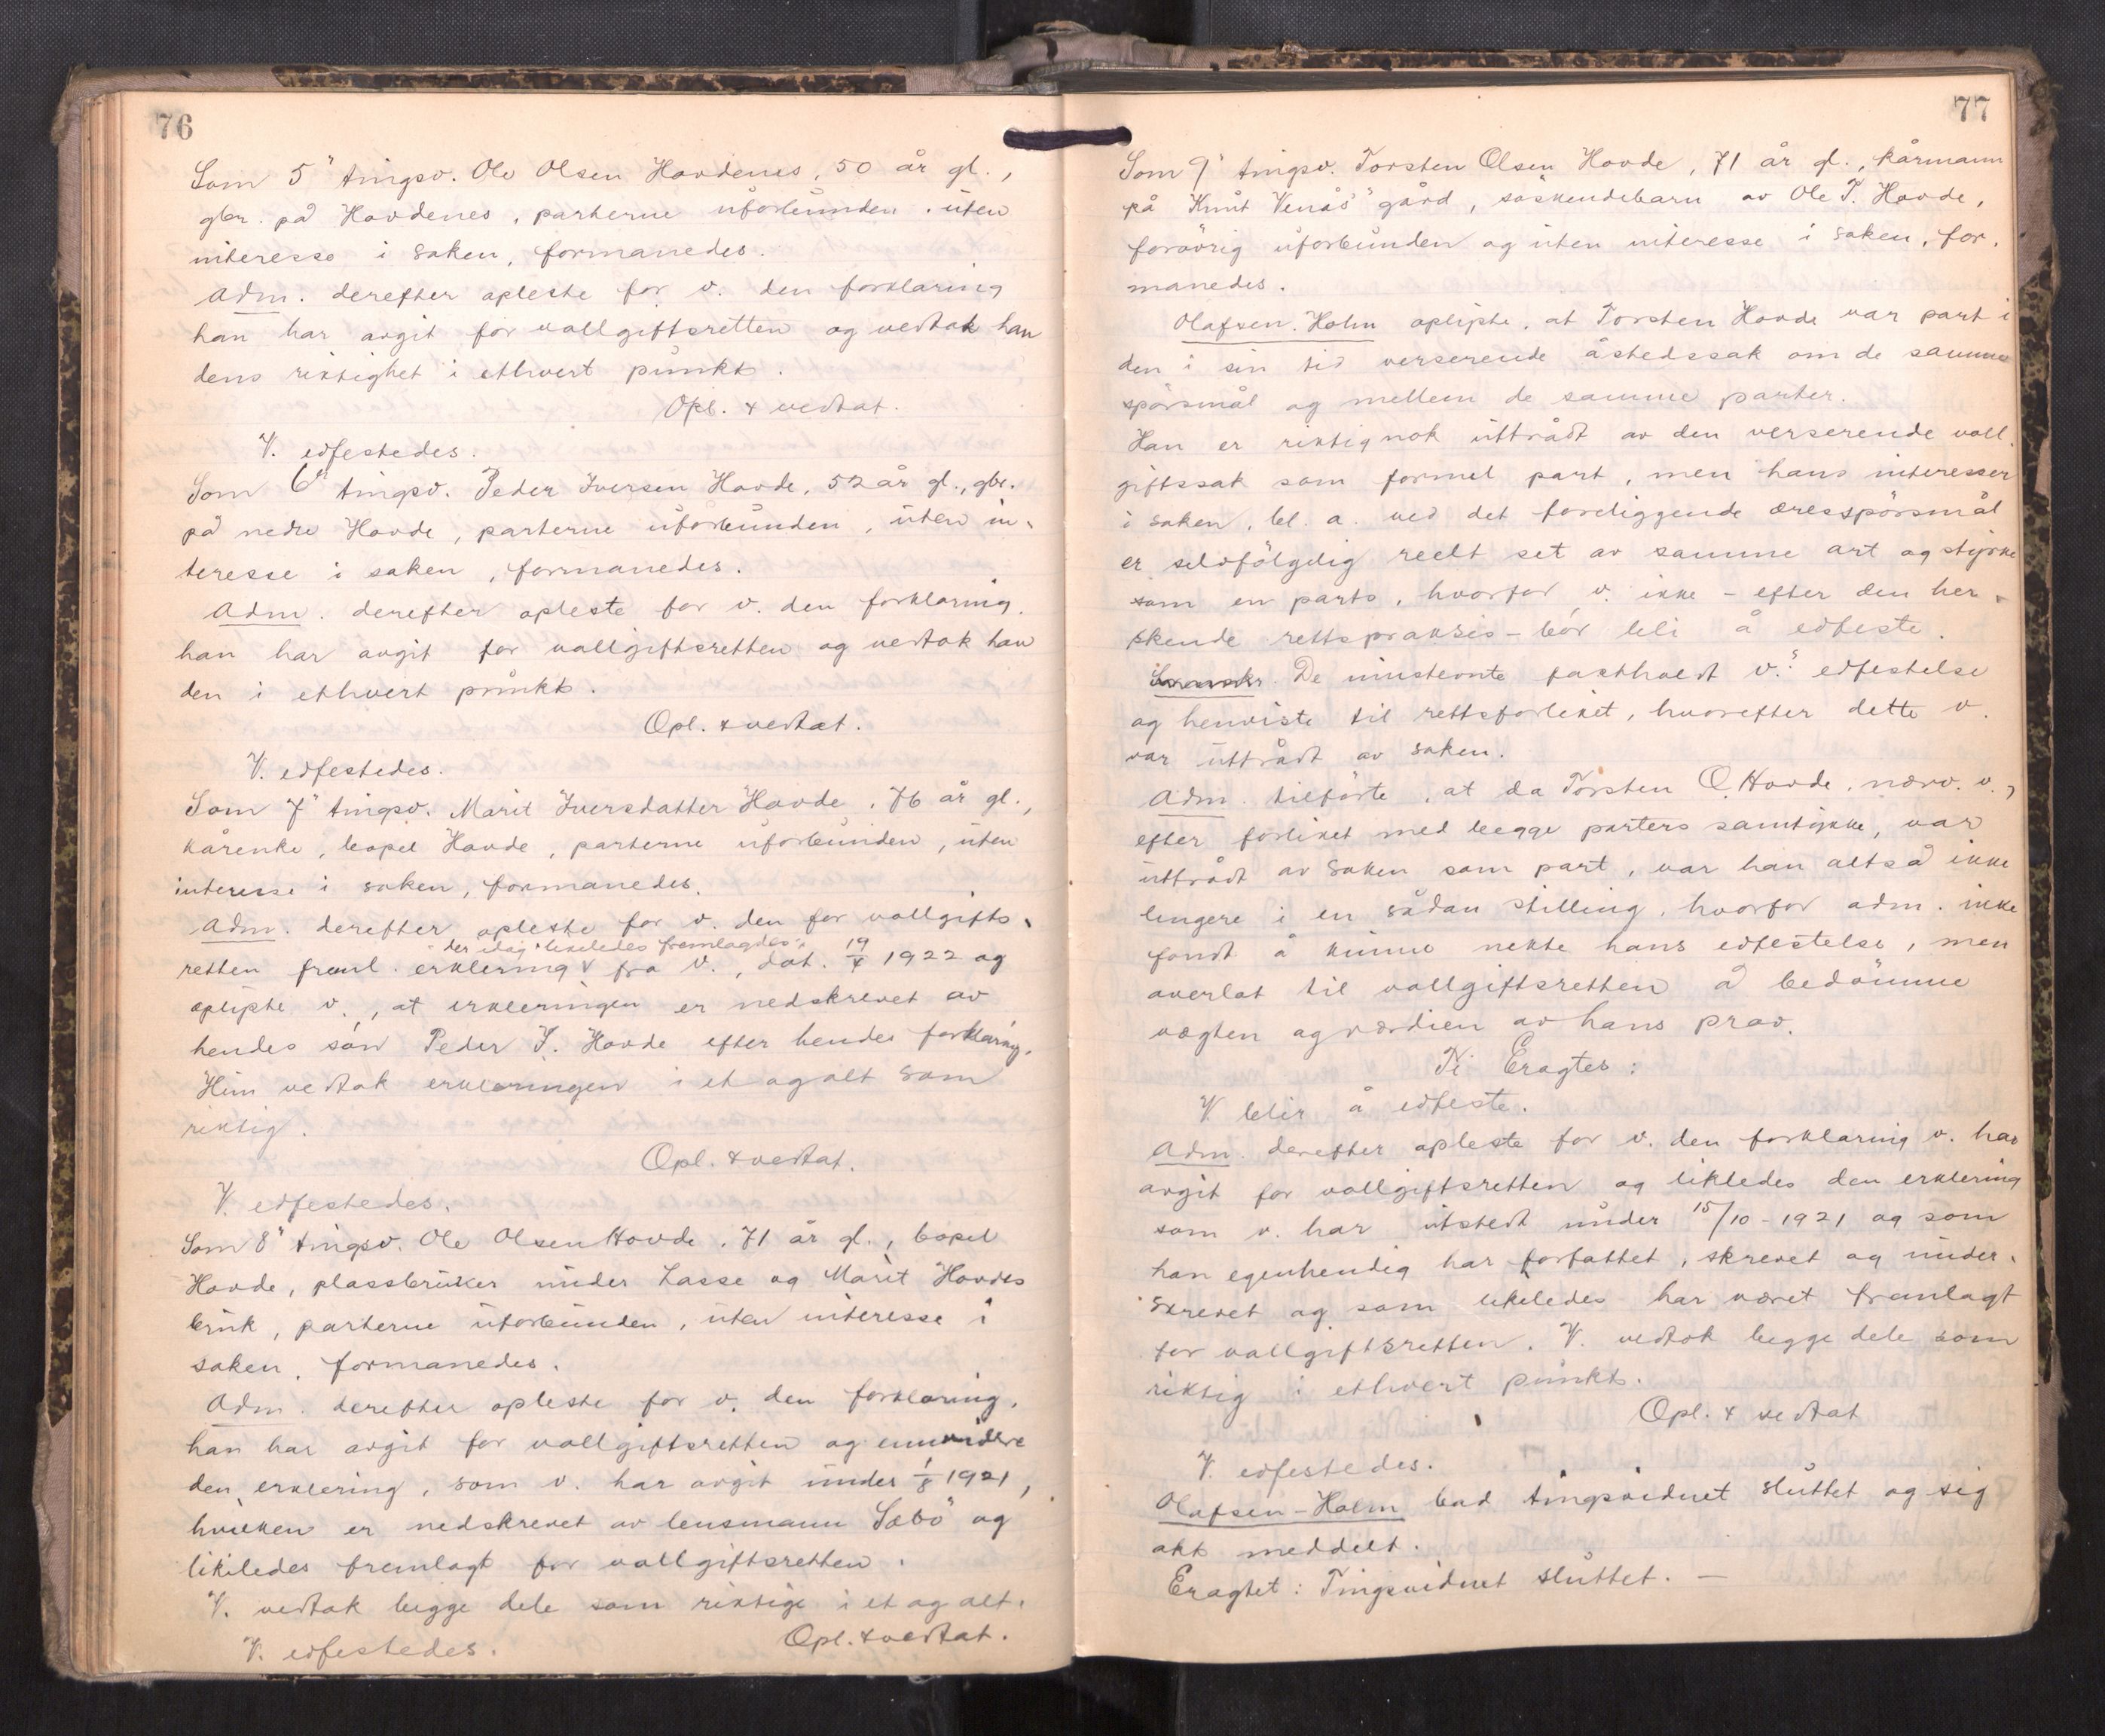 76
Som 5" tingsv. Ole Olsen Hovdenes, 50 år gl.,
gbr. på Hovdenes, parterne uforbunden, uten
interesse i saken, formanedes.
Adm. derefter opleste for v. den forklaring
han har avgit for vollgiftsretten og vedtok han
dens riktighet i ethvert punkt.
Opl. & vedtat.
V. edfestedes.
Som 6" tingsv. Peder Iversen Hovde, 52 år gl., gbr.
på nedre Hovde, parterne uforbunden, uten in-
teresse i saken, formanedes.
Adm. derefter opleste for v. den forklaring
han har avgit for vollgiftsretten og vedtok han
den i ethvert punkt.
Opl. & vedtat.
V. edfestedes.
Som 7" tingsv. Marit Iversdatter Hovde, 76 år gl.,
kårenke, bopel Hovde, parterne uforbunden, uten
interesse i saken, formanedes.
Adm. derefter opleste for v. den for vollgifts-
der idag likeledes fremlagdes
retten freml. erklering fra v., dat. 19/4 1922 og
oplyste v., at erkleringen er nedskrevet av
hendes sön Peder I. Hovde efter hendes forklaring.
Hun vedtok erkleringen i et og alt som
riktig.
Opl. & vedtat.
V. edfestedes.
Som 8" tingsv. Ole Olsen Hovde, 71 år gl., bopel
Hovde, plassbruker under Lasse og Marit Hovdes
bruk, parterne uforbunden, uten interesse i
saken, formanedes.
Adm. derefter opleste for v. den forklaring,
han har avgit for vollgiftsretten og ennvidere
den erklering, som v. har avgit under 1/8 1921,
hvilken er nedskrevet av lensmann Sæbö og
likeledes fremlagt for vollgiftsretten.
V. vedtok begge dele som riktige i et og alt.
Opl. & vedtat.
V. edfestedes.
77
Som 9" tingsv. Torsten Olsen Hovde, 71 år gl., kårmann
på Knut Venås" gård, söskendebarn av Ole T. Hovde,
forövrig uforbunden og uten interesse i saken, for-
manedes.
Olafsen-Holm oplyste, at Torsten Hovde var part i
den i sin tid verserende åstedssak om de samme
spörsmål og mellem de samme parter.
Han er riktignok uttrådt av den verserende voll-
giftssak som formel part, men hans interesser
i saken, bl. a. ved det foreliggende æresspörsmål
er selvfölgelig reelt set av samme art og styrke
som en parts, hvorfor v. ikke - efter den her-
skende rettspraksis - bör bli å edfeste.
De innstevnte fastholdt v.s edfestelse
og henviste til rettsforliket, hvorefter dette v.
var uttrådt av saken.
Adm. tilförte, at da Torsten O. Hovde, nærv. v.,
efter forliket med begge parters samtykke, var
uttrådt av saken som part, var han altså ikke
lengere i en sådan stilling, hvorfor adm. ikke
fandt å kunne nekte hans edfestelse, men
overlot til vollgiftsretten å bedömme
vegten og værdien av hans prov.
Ti Eragtes:
V. blir å edfeste.
Adm. derefter opleste for v. den forklaring v. har
avgit for vollgiftsretten og likledes den erklering
som v. har utstedt under 15/10-1921 og som
han egenhendig har forfattet, skrevet og under-
skrevet og som likeledes har været fremlagt
for vollgiftsretten. V. vedtok begge dele som
riktig i ethvert punkt.
Opl. & vedtat
V. edfestedes.
Olafsen-Holm bad tingsvidnet sluttet og sig
akt meddelt.
Eragtet: Tingsvidnet sluttet. -